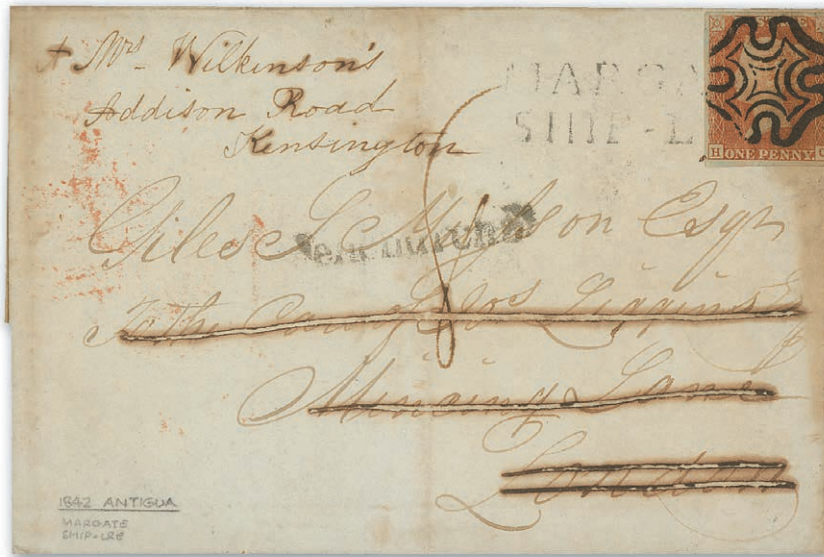 + Mrs Wilkinson's
Addison Road
Kensington
MARGA
SHIP-L
H ONE PENNY
Giles S. Esqr
To the Care of Jos Liggins
Mincing Lane
London
1842 ANTIGUA
MARGATE
SHIP-LRE